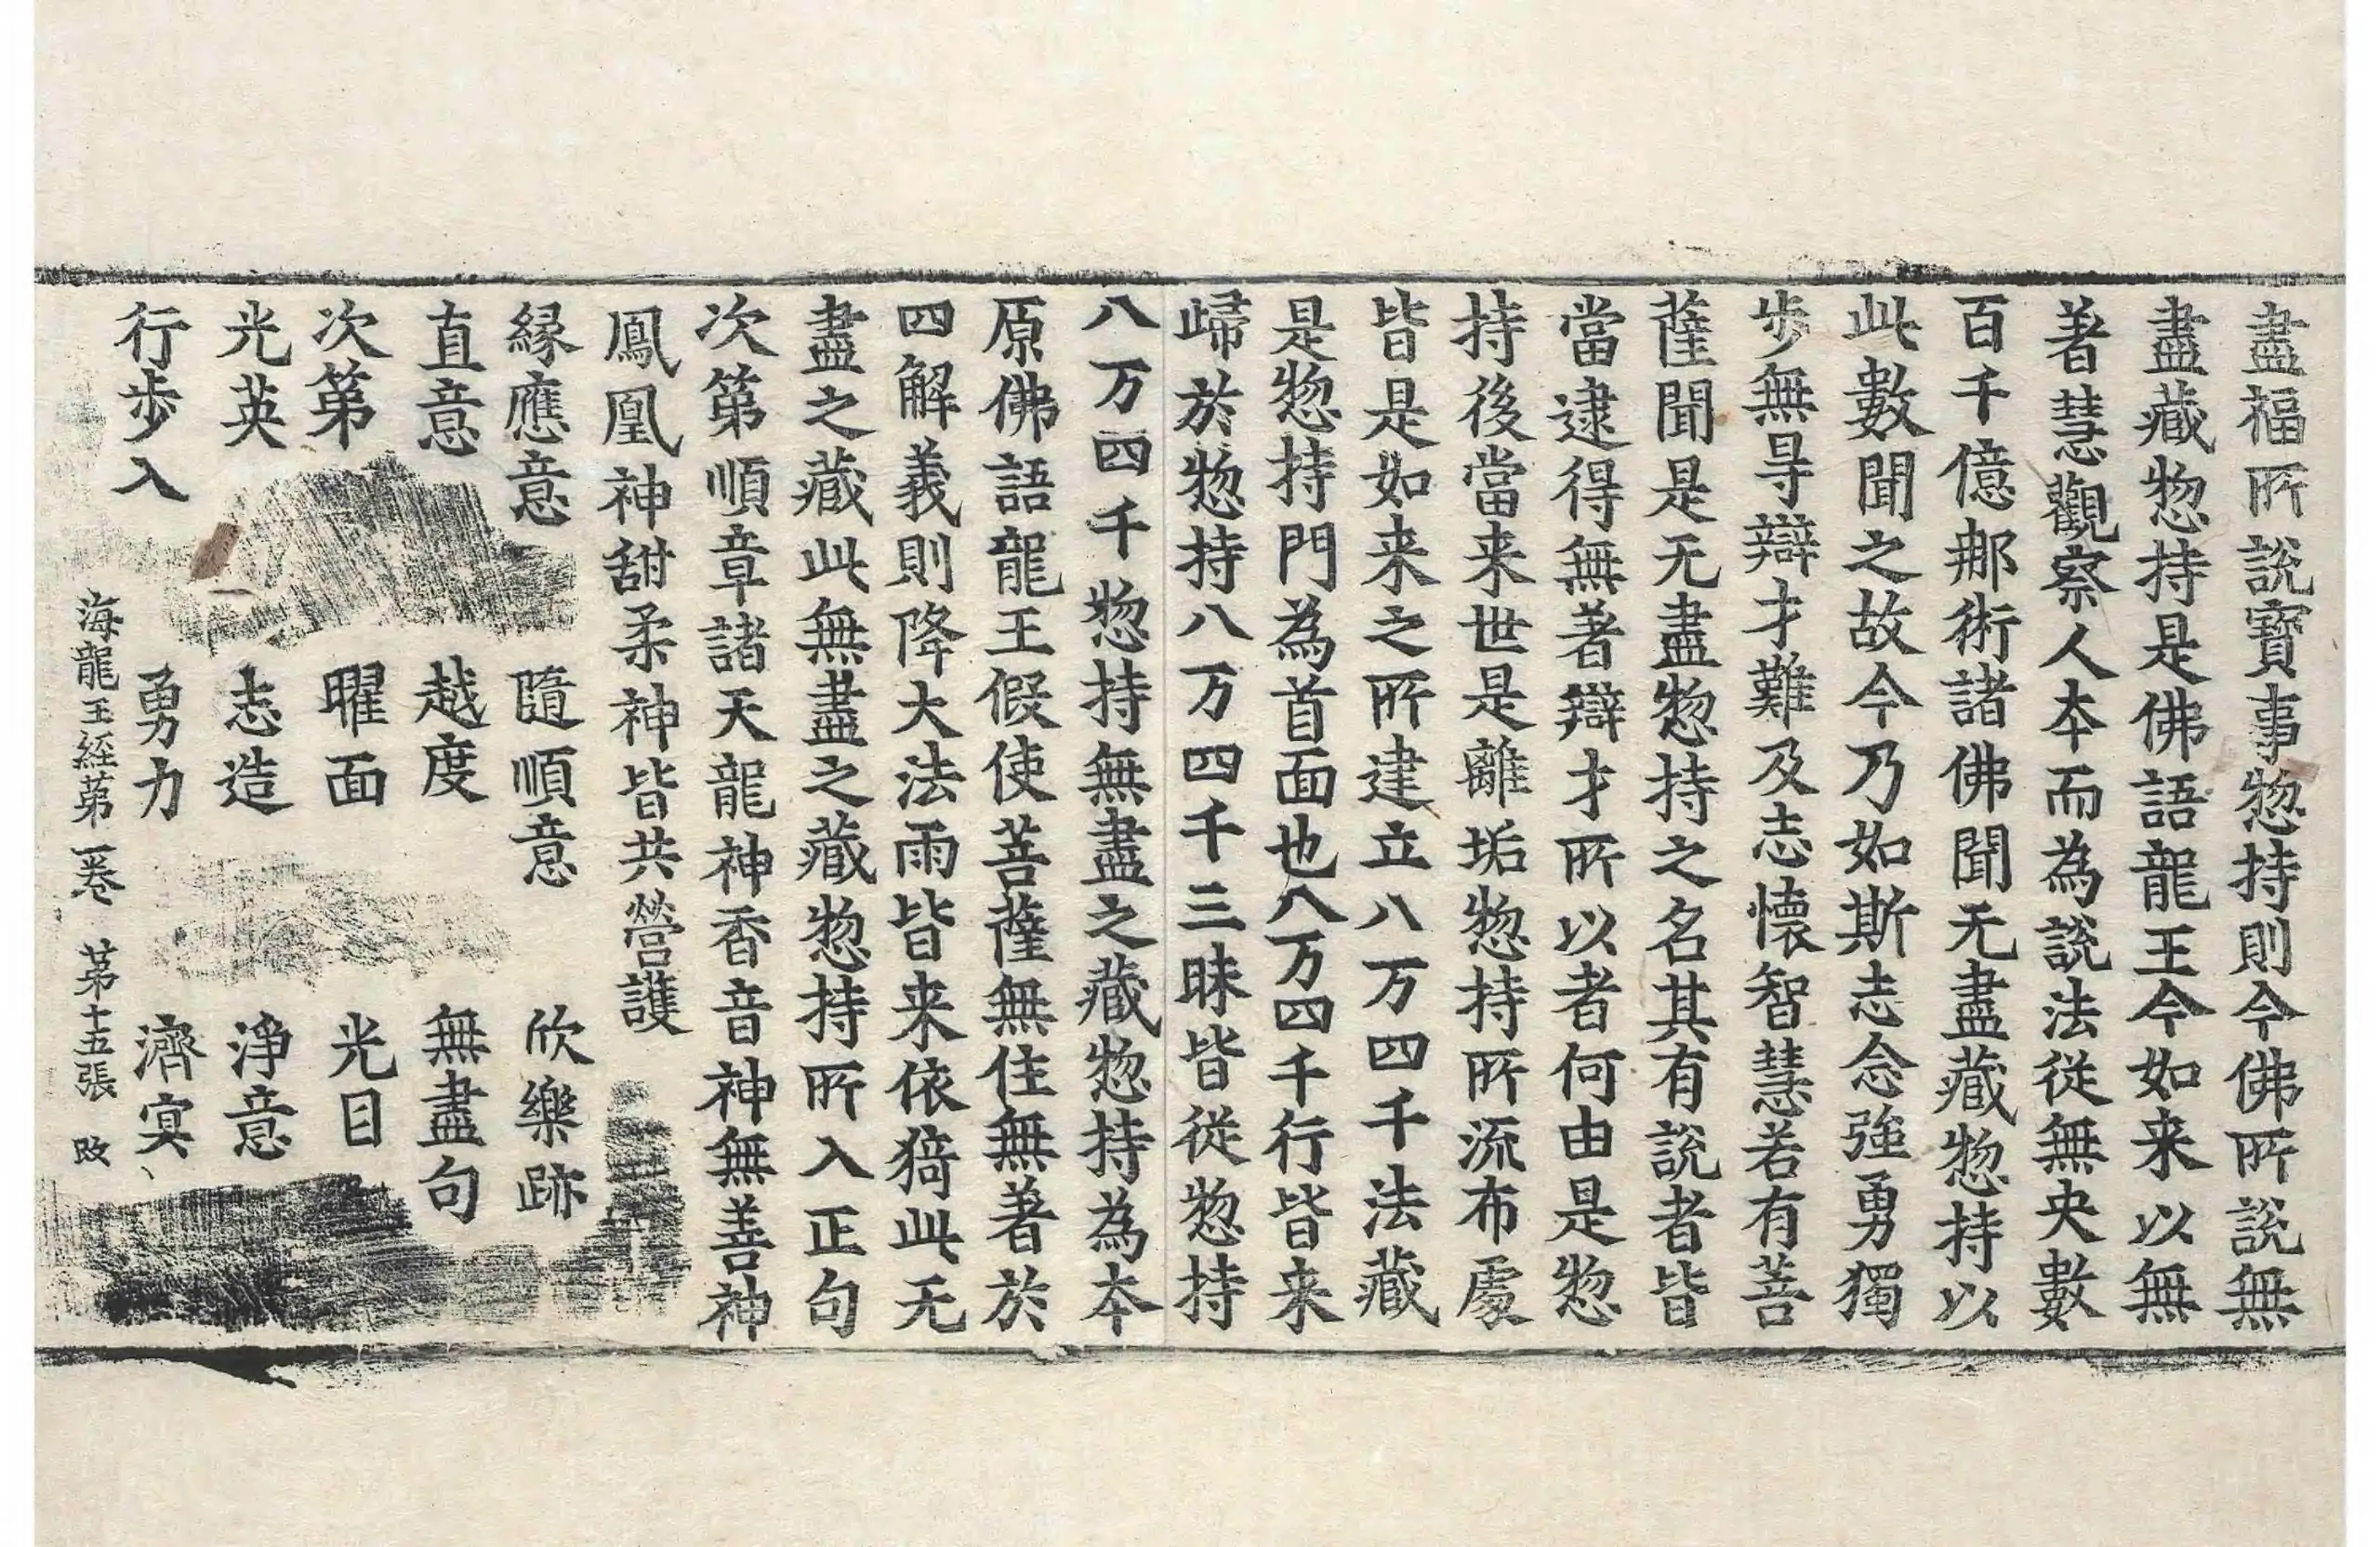 盡福所說寶事惣持則今佛所說無
盡藏惣持是佛語龍王今如来以無
著慧觀察人本而為說法從無央數
百千億那術諸佛聞无盡藏惣持以
此數聞之故今乃如斯志念強勇獨
步無㝵辯才難及志懷智慧若有菩
薩聞是无盡惣持之名其有說者皆
當逮得無著辯才所以者何由是惣
持後當来世是離垢惣持所流布處
皆是如来之所建立八万四千法藏
是惣持門為首面也八万四千行皆来
歸於惣持八万四千三昧皆從惣持
八万四千惣持無盡之藏惣持為本
原佛語龍王假使菩薩無住無著於
四解義則降大法雨皆来依猗此无
盡之藏此無盡之藏惣持所入正句
次第順章諸天龍神香音神無善神
鳳凰神甜柔神皆共營護
緣應意　隨順意　欣樂跡
直意　越度　無盡句
次第　曜面　光目
光英　志造　淨意
行步入　勇力　濟㝠
海龍王經第一卷　第十五張　改